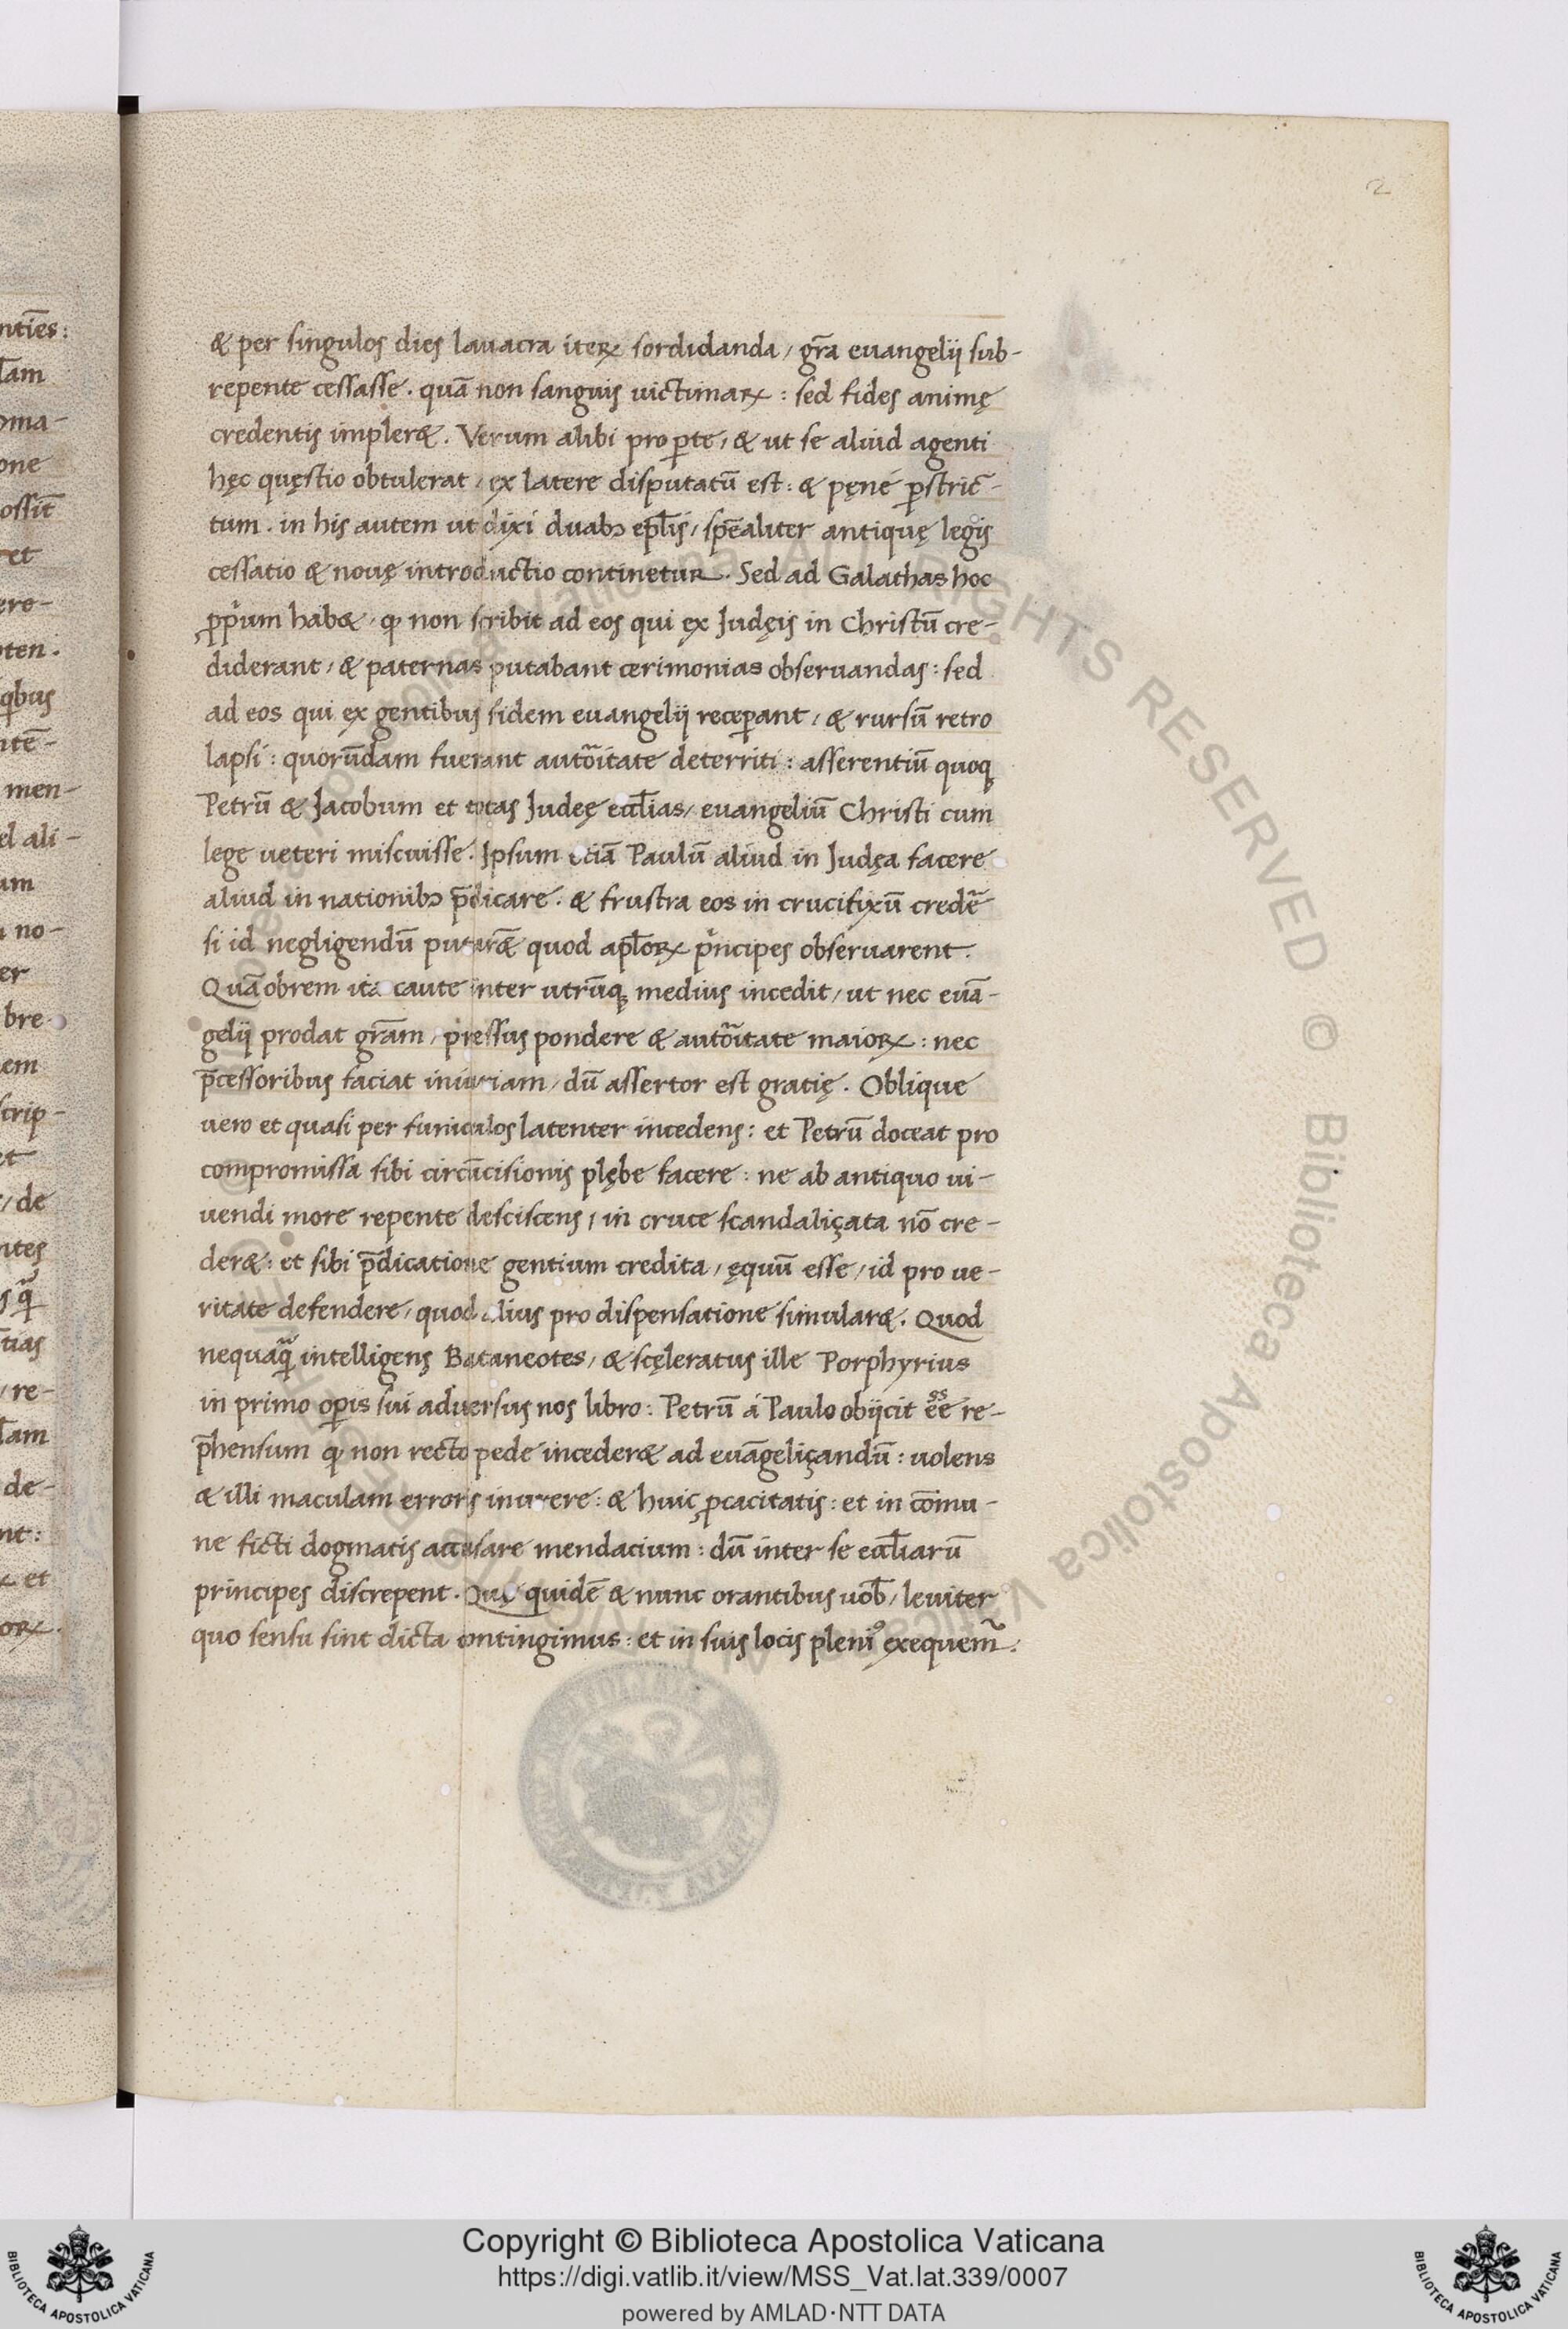 2
& per singulos dies lavacra iteꝝ sordidanda / gr̄a euangelij sub-
repente cessasse . quā non sanguis uictimaꝝ : sed fides animę
credentis impler& . Verum alibi pro ꝑte / & ut se aliud agenti
hęc quęstio obtulerat / ex latere disputatū est : & pęne ꝑstric-
tum . in his autem ut dixi duabꝫ epl̄is / spēaliter antiquę legis
cessatio & nouę introductio continetur . Sed ad Galathas hoc
ꝓprium hab& . ꝙ non scribit ad eos qui ex Judęis in Christū cre-
diderant / & paternas putabant cerimonias obseruandas : sed
ad eos qui ex gentibus fidem euangelij receꝑant / & rursū retro
lapsi : quorūdam fuerant autōritate deterriti : asserentiū quoqꝫ
Petrū & Jacobum et totas Judeę eccl̄ias / euangeliū Christi cum
lege ueteri miscuisse . Ipsum etiā Paulū aliud in Judęa facere
aliud in nationibꝫ p̄dicare . & frustra eos in crucifixū credē
si id negligendū putar& quod apl̄oꝝ principes obseruarent .
Quāobrem ita caute inter utrūqꝫ medius incedit / ut nec euā-
gelij prodat gr̄am / pressus pondere & autōritate maioꝝ : nec
p̄cessoribus faciat iniuriam / dū assertor est gratię . Oblique
uero et quasi per funiculos latenter incedens : et Petrū doceat pro
compromissa sibi circūcisionis plębe facere : ne ab antiquo ui-
uendi more repente desciscens / in cruce scandaliçata nō cre-
der& : et sibi p̄dicatione gentium credita / ęquū esse / id pro ue-
ritate defendere / quod alius pro dispensatione simular& . Quod
nequaq̄ intelligens Bataneotes / & scęleratus ille Porphyrius
in primo oꝑis sui aduersus nos libro : Petrū á Paulo obijcit ēē re-
p̄hensum ꝙ non recto pede inceder& ad euāgeliçandū : uolens
& illi maculam erroris inurere : & huic ꝓcacitatis : et in cōmu-
ne ficti dogmatis accusare mendacium : dū inter se eccl̄iarū
principes discrepent . Quę quidē & nunc orantibus uob̄ / leuiter
quo sensu sint dicta contingimus : et in suis locis pleniꝰ exequem̄ .
Copyright © Biblioteca Apostolica Vaticana
https://digi.vatlib.it/view/MSS_Vat.lat.339/0007
powered by AMLAD·NTT DATA